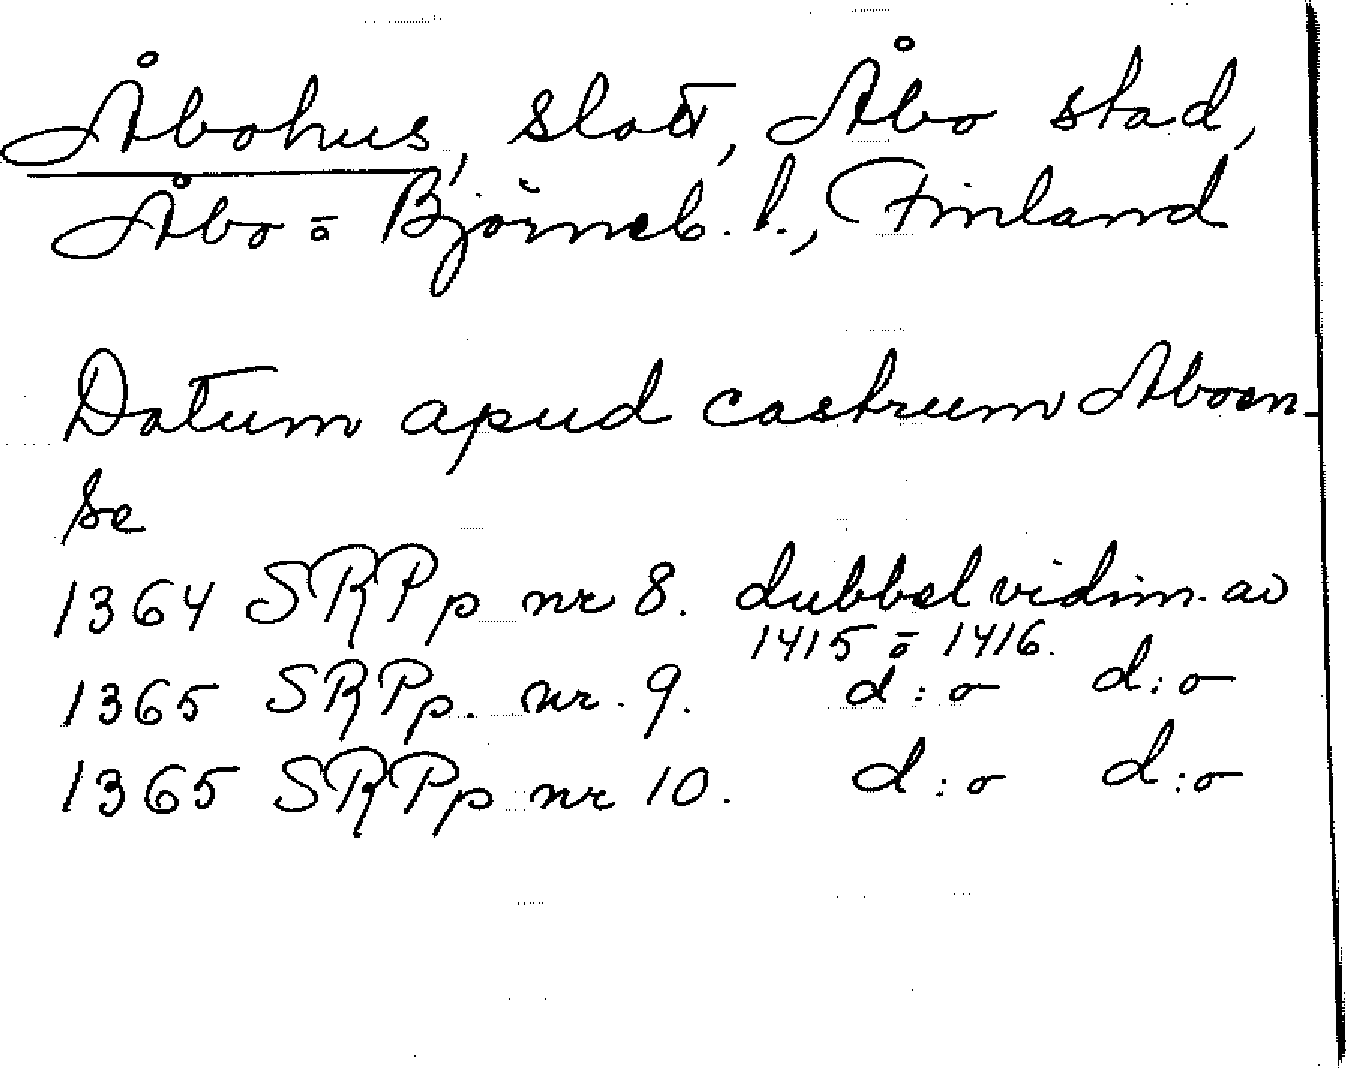 Åbohus, slott, Åbo stad,
Åbo = Björneb. l., Finland
Datum apud castrum Aboen-
se
1364 SRPp nr 8. dubbel vidim. av
1415 o 1416.
1365 SRPp. nr. 9. d:o d:o
1365 SRPp nr 10. d:o d:o